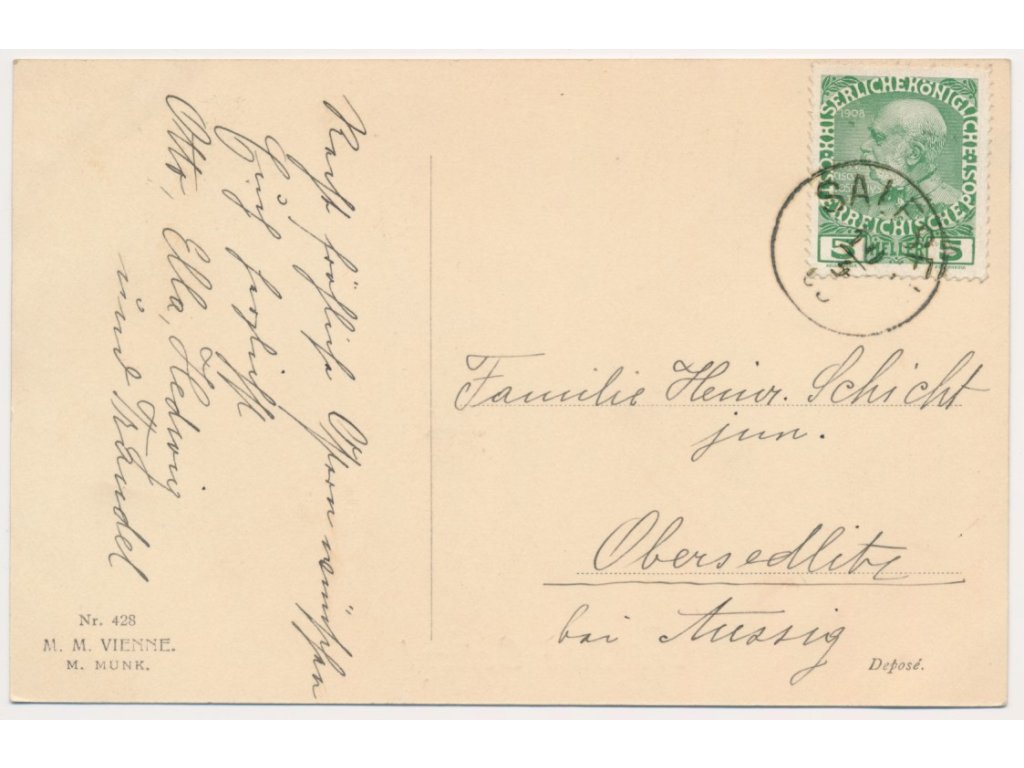 Recht fröhliche Ostern wünschen
Euch herzlichst
Otto, Ella, Hedwig
und Trandel
Nr. 428
M. M. VIENNE.
M. MUNK.
KAISERLICHEKÖNIGLICHE
ÖSTERREICHISCHE POST
1908
5 HELLER 5
Familie Heinr. Schicht
jun.
Obersedlitz
bei Aussig
Deposé.